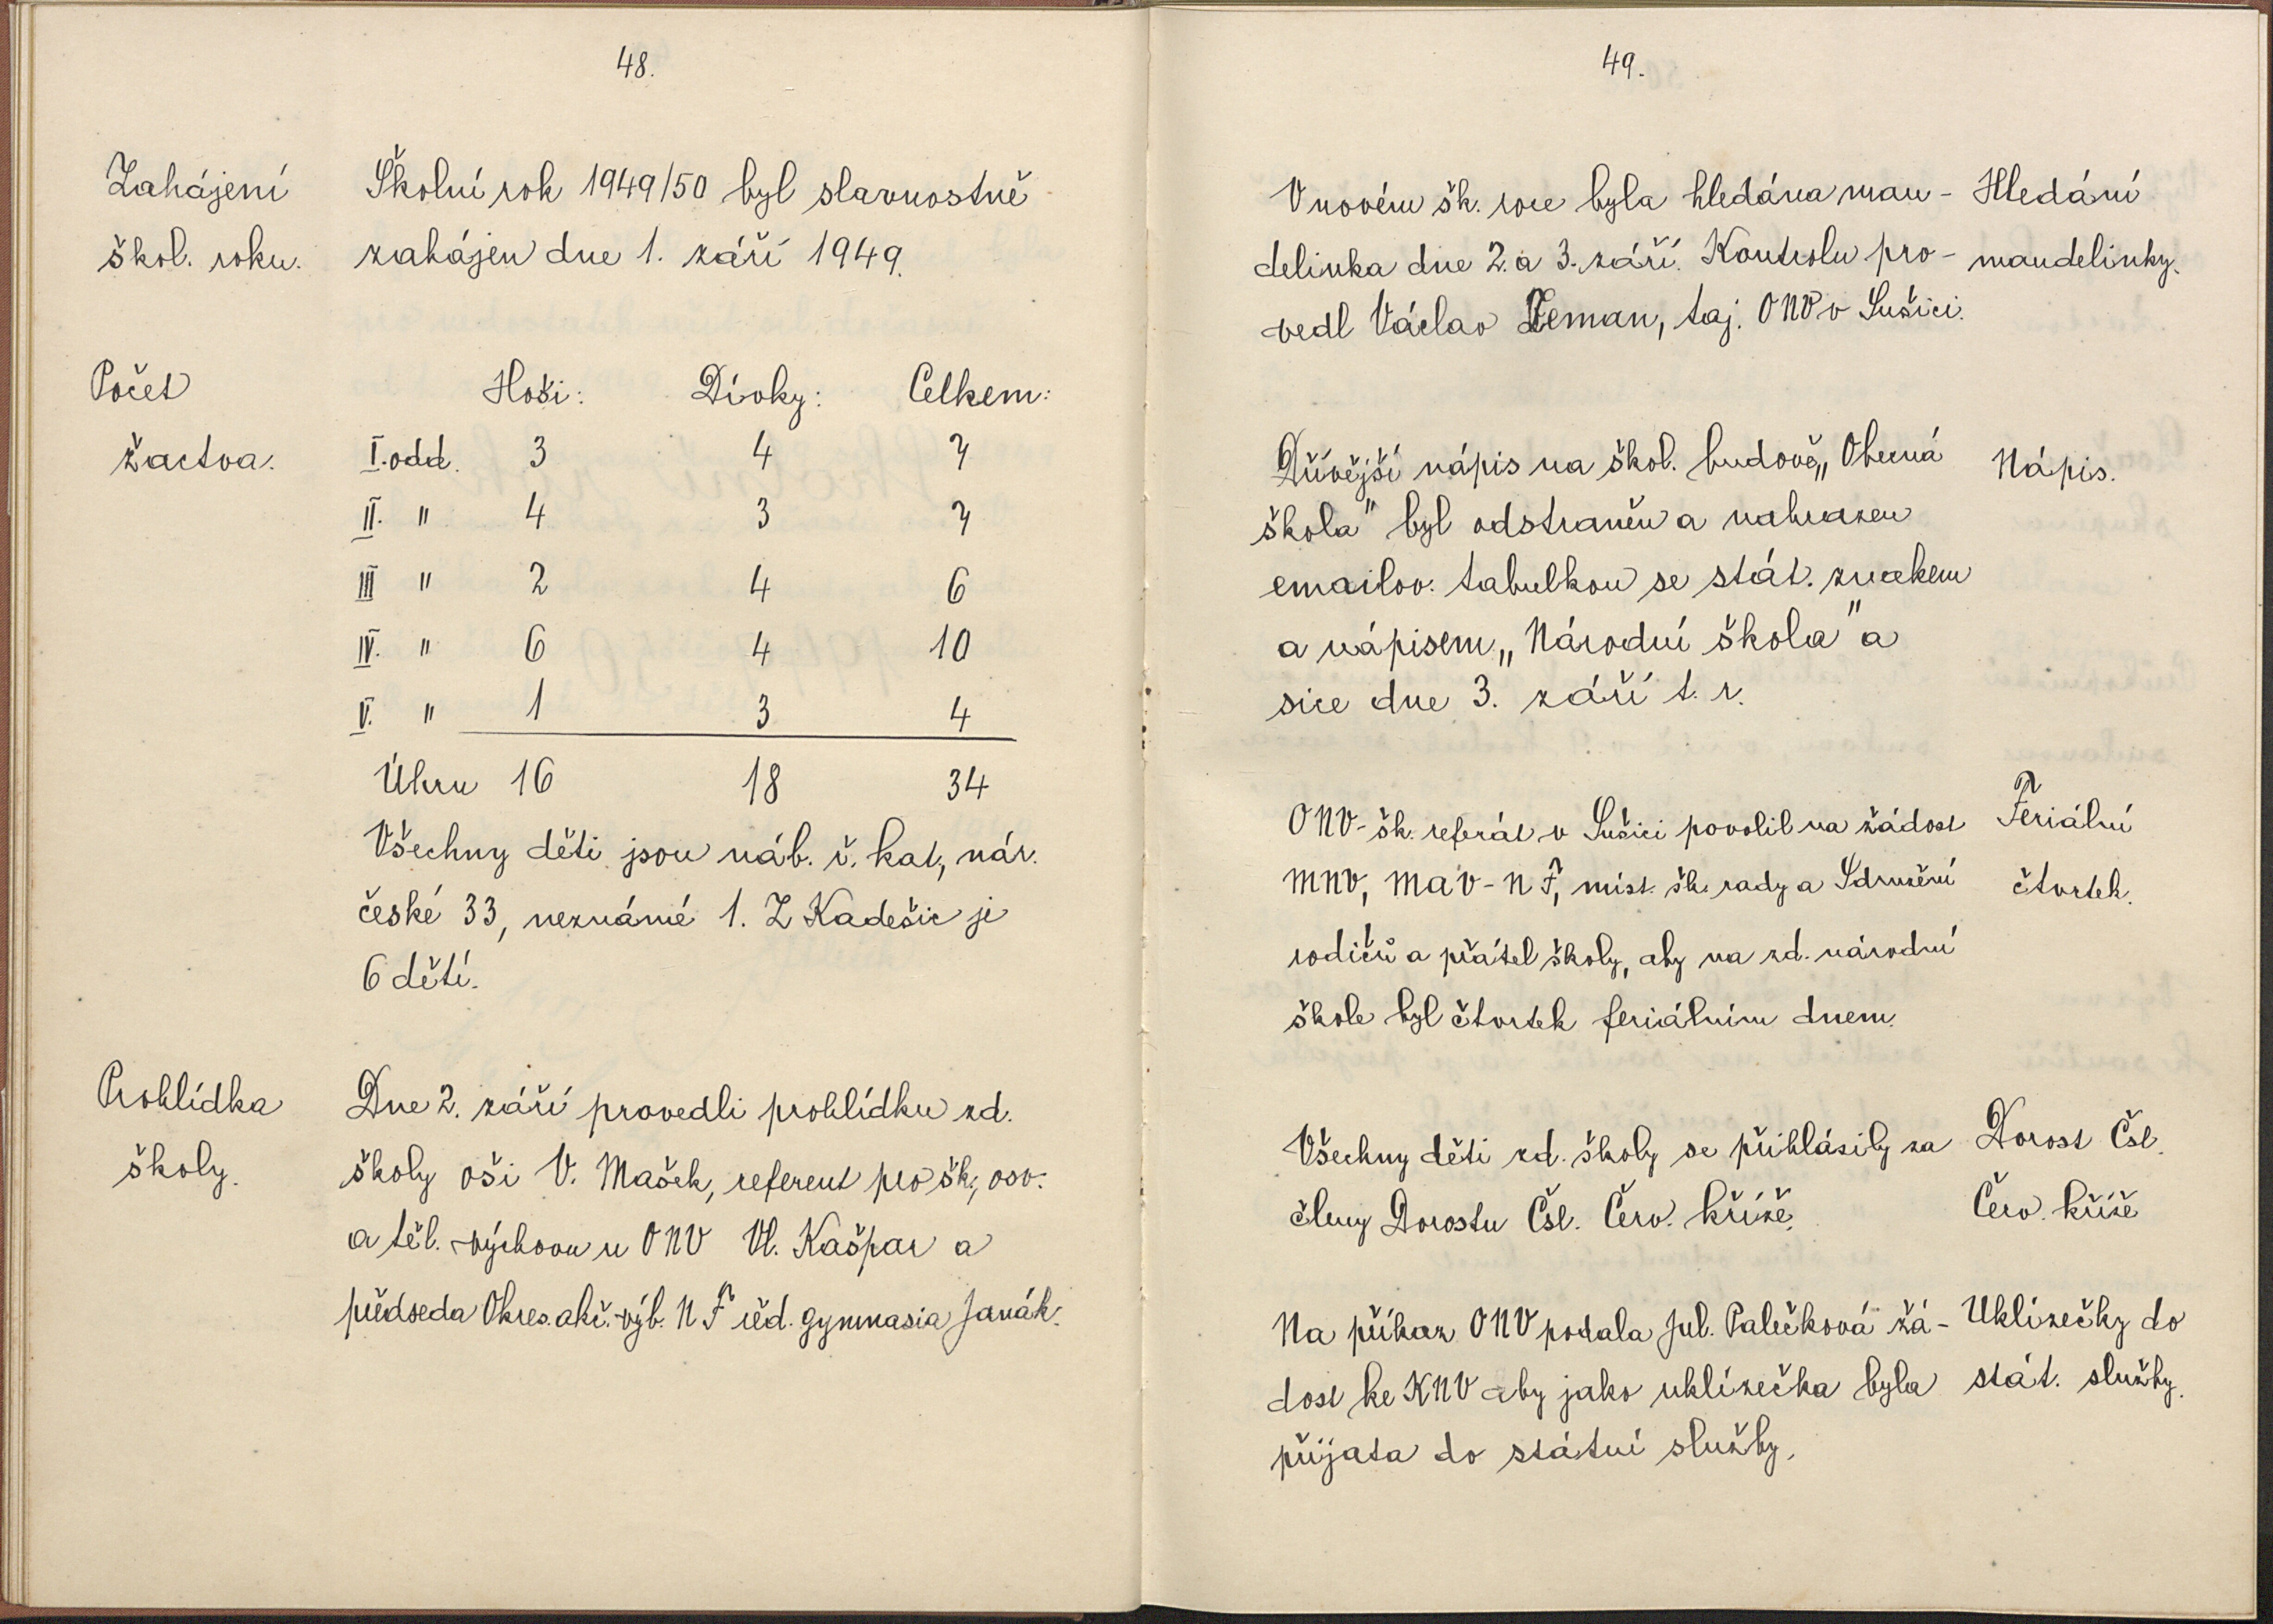 48.
Zahájení
škol. roku.
Školní rok 1949/50 byl slavnostně
zahájen dne 1. září 1949.
Počet
žactva.
Hoši: Dívky: Celkem:
I. odd. 3 4 7
II. " 4 3 7
III " 2 4 6
IV. " 6 4 10
V. " 1 3 4
Úhrn 16 18 34
Všechny děti jsou náb. ř. kat., nár.
české 33, neznámé 1. Z Kadešic je
6 dětí.
Prohlídka
školy.
Dne 2. září provedli prohlídku zd.
školy oši V. Mašek, referent pro šk., osv.
a těl. výchovu u ONV Vl. Kašpar a
předseda Okres. akč. výb. NF řed. gymnasia Janák.
49.
V novém šk. roce byla hledána man-
delinka dne 2. a 3. září. Kontrolu pro-
vedl Václav Zeman, taj. ONV v Sušici.
Hledání
mandelinky.
Dřívější nápis na škol. budově „Obecná
škola" byl odstraněn a nahrazen
emailov. tabulkou se stát. znakem
a nápisem „Národní škola" a
sice dne 3. září t. r.
Nápis.
ONV-šk. referát v Sušici povolil na žádost
MNV, MAV-NF, míst. šk. rady a Sdružení
rodičů a přátel školy, aby na zd. národní
škole byl čtvrtek feriálním dnem.
Feriální
čtvrtek.
Všechny děti zd. školy se přihlásily za
členy Dorostu Čsl. Červ. kříže.
Dorost Čsl.
Červ. kříže
Na příkaz ONV podala Jul. Palečková žá-
dost ke KNV aby jako uklízečka byla
přijata do státní služby.
Uklízečky do
stát. služby.